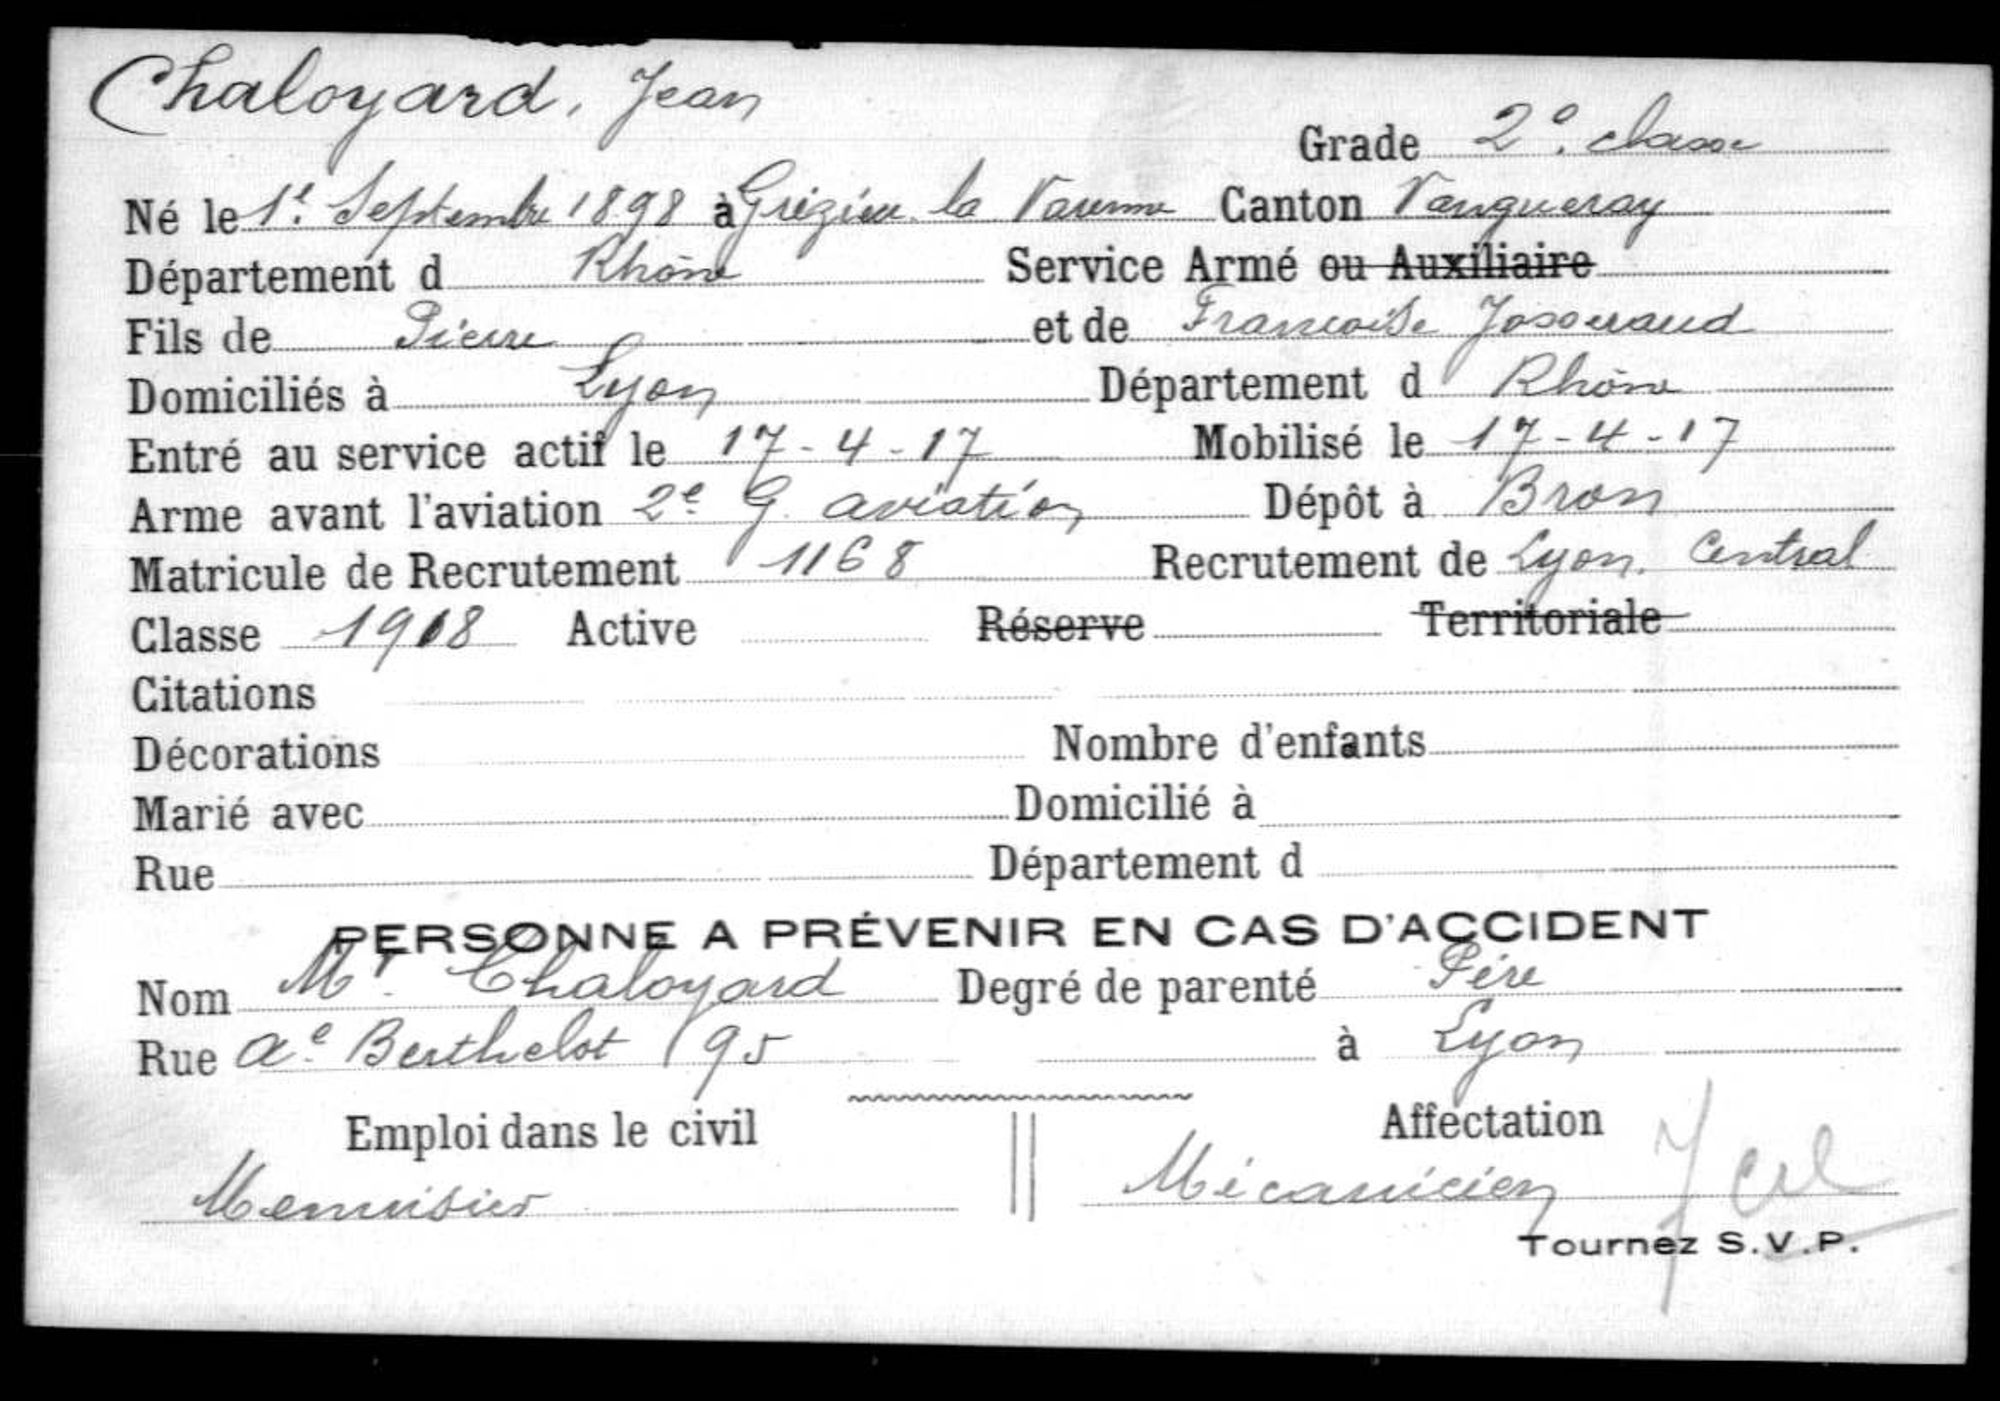 Chaloyard, Jean
Grade 2e. classe
Né le 1er Septembre 1898 à Grézieu la Varenne Canton Vaugneray
Département d Rhône Service Armé ou Auxiliaire
Fils de Pierre et de Francoise Josserand
Domiciliés à Lyon Département d Rhône
Entré au service actif le 17-4-17 Mobilisé le 17-4-17
Arme avant l'aviation 2e G. aviation Dépôt à Bron
Matricule de Recrutement 1168 Recrutement de Lyon. Central
Classe 1918 Active Réserve Territoriale
Citations
Décorations Nombre d'enfants
Marié avec Domicilié à
Rue Département d
PERSONNE A PRÉVENIR EN CAS D'ACCIDENT
Nom Mr. Chaloyard Degré de parenté Pére
Rue Ae Berthelot 95 à Lyon
Emploi dans le civil Affectation
Menuisier Mécanicien
Tournez S.V.P.